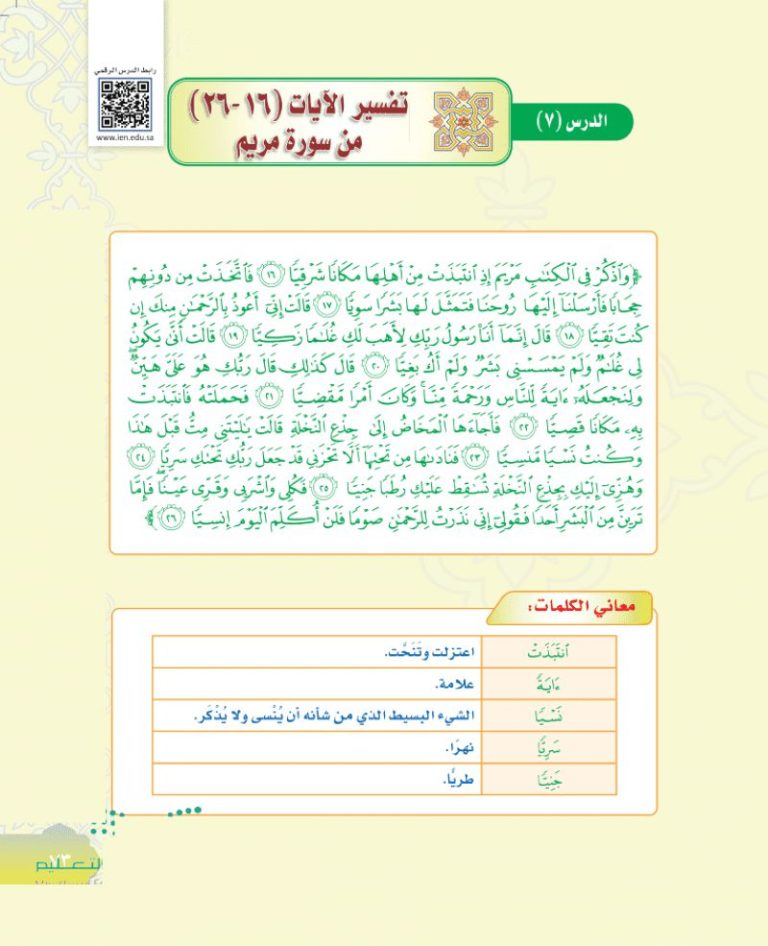 رابط الدرس الرقمي
www.ien.edu.sa
الدرس (٧)
تفسير الآيات (١٦-٢٦)
من سورة مريم
﴿وَٱذۡكُرۡ فِي ٱلۡكِتَٰبِ مَرۡيَمَ إِذِ ٱنتَبَذَتۡ مِنۡ أَهۡلِهَا مَكَانٗا شَرۡقِيّٗا ١٦ فَٱتَّخَذَتۡ مِن دُونِهِمۡ
حِجَابٗا فَأَرۡسَلۡنَآ إِلَيۡهَا رُوحَنَا فَتَمَثَّلَ لَهَا بَشَرٗا سَوِيّٗا ١٧ قَالَتۡ إِنِّيٓ أَعُوذُ بِٱلرَّحۡمَٰنِ مِنكَ إِن
كُنتَ تَقِيّٗا ١٨ قَالَ إِنَّمَآ أَنَا۠ رَسُولُ رَبِّكِ لِأَهَبَ لَكِ غُلَٰمٗا زَكِيّٗا ١٩ قَالَتۡ أَنَّىٰ يَكُونُ
لِي غُلَٰمٞ وَلَمۡ يَمۡسَسۡنِي بَشَرٞ وَلَمۡ أَكُ بَغِيّٗا ٢٠ قَالَ كَذَٰلِكِ قَالَ رَبُّكِ هُوَ عَلَيَّ هَيِّنٞۖ
وَلِنَجۡعَلَهُۥٓ ءَايَةٗ لِّلنَّاسِ وَرَحۡمَةٗ مِّنَّاۚ وَكَانَ أَمۡرٗا مَّقۡضِيّٗا ٢١ فَحَمَلَتۡهُ فَٱنتَبَذَتۡ
بِهِۦ مَكَانٗا قَصِيّٗا ٢٢ فَأَجَآءَهَا ٱلۡمَخَاضُ إِلَىٰ جِذۡعِ ٱلنَّخۡلَةِ قَالَتۡ يَٰلَيۡتَنِي مِتُّ قَبۡلَ هَٰذَا
وَكُنتُ نَسۡيٗا مَّنسِيّٗا ٢٣ فَنَادَىٰهَا مِن تَحۡتِهَآ أَلَّا تَحۡزَنِي قَدۡ جَعَلَ رَبُّكِ تَحۡتَكِ سَرِيّٗا ٢٤
وَهُزِّيٓ إِلَيۡكِ بِجِذۡعِ ٱلنَّخۡلَةِ تُسَٰقِطۡ عَلَيۡكِ رُطَبٗا جَنِيّٗا ٢٥ فَكُلِي وَٱشۡرَبِي وَقَرِّي عَيۡنٗاۖ فَإِمَّا
تَرَيِنَّ مِنَ ٱلۡبَشَرِ أَحَدٗا فَقُولِيٓ إِنِّي نَذَرۡتُ لِلرَّحۡمَٰنِ صَوۡمٗا فَلَنۡ أُكَلِّمَ ٱلۡيَوۡمَ إِنسِيّٗا ٢٦﴾
معاني الكلمات:
ٱنتَبَذَتۡ اعتزلت وتَنَحَّت.
ءَايَةٗ علامة.
نَسۡيٗا الشيء البسيط الذي من شأنه أن يُنْسى ولا يُذْكَر.
سَرِيّٗا نهرًا.
جَنِيّٗا طريًّا.
٧٣